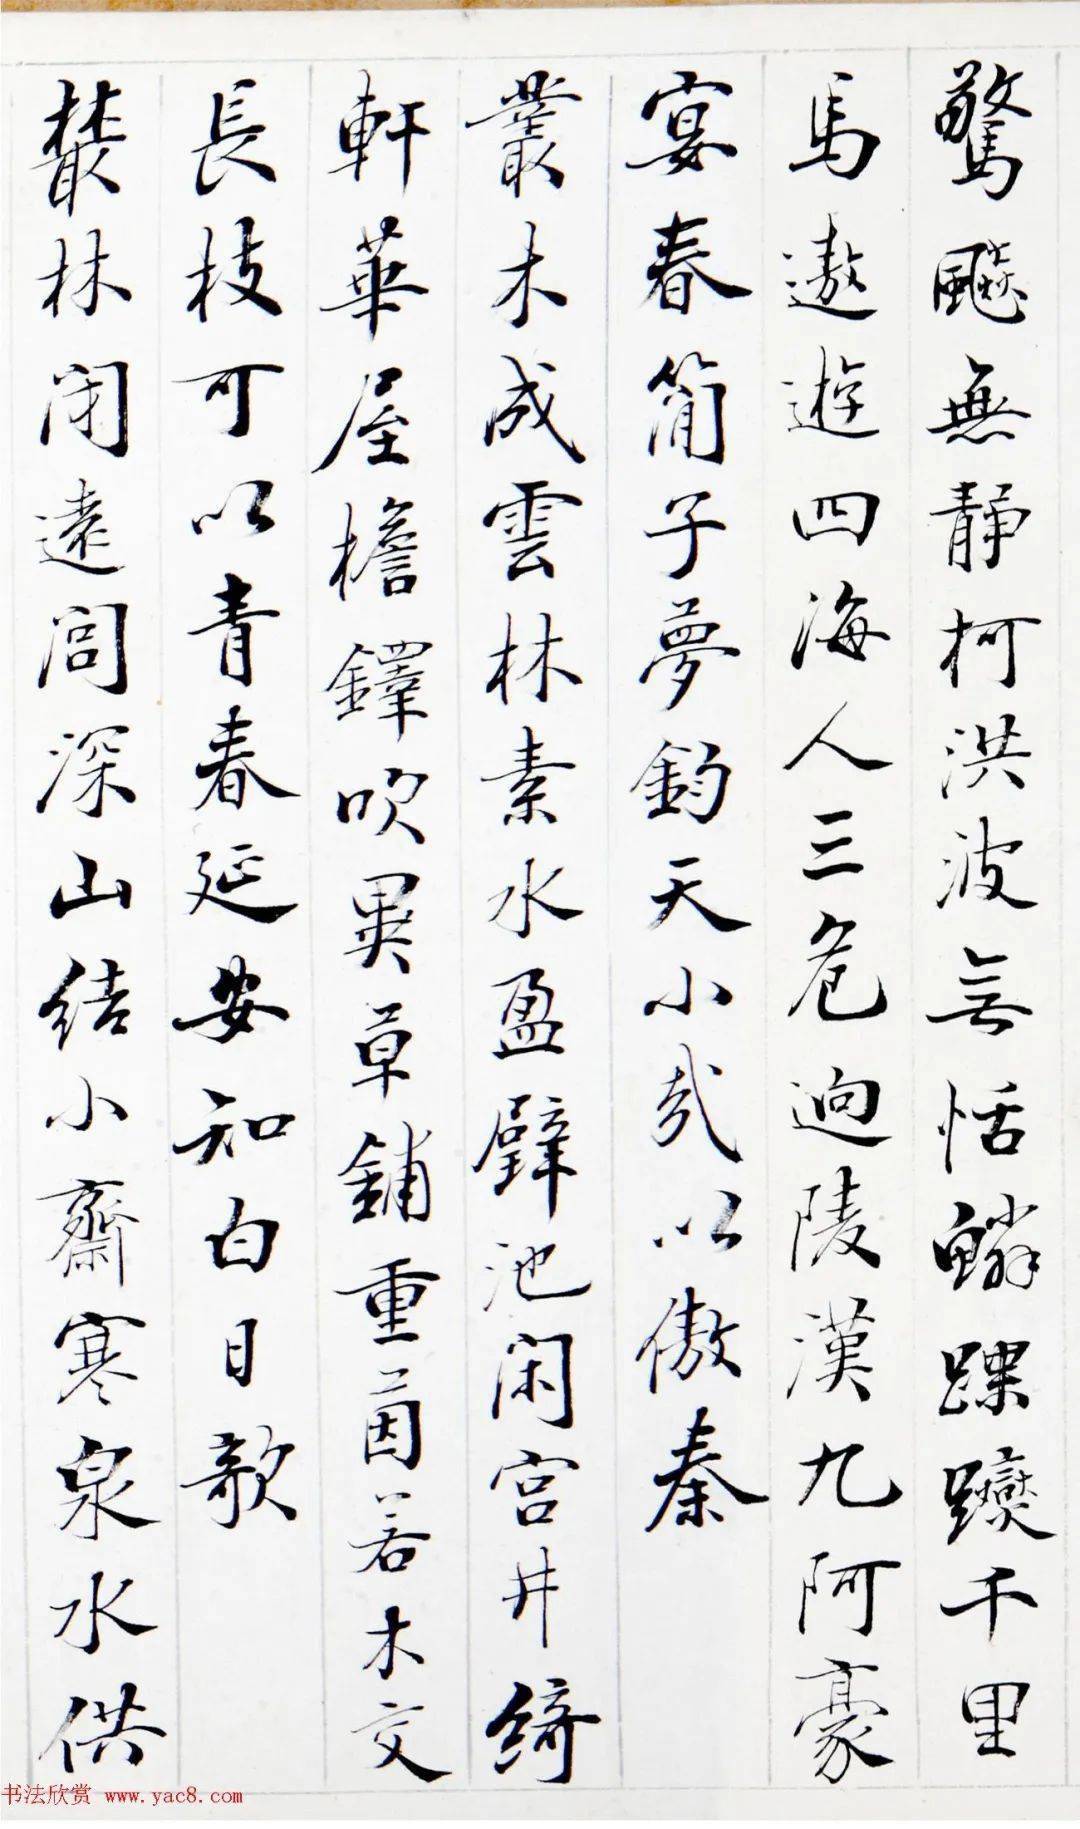 驚飈無靜柯洪波無恬鱗踝躞千里
馬遨遊四海人三危迥陵漢九阿豪
宴春簡子夢鈞天小哉以傲秦
叢木成雲林素水盈璧池閑宮井綺
軒華屋檐鐸吹異草鋪重茵若木交
長枝可以青春延安知白日歌
叢林閉遠閭深山結小齋寒泉水供
书法欣赏 www.yac8.com